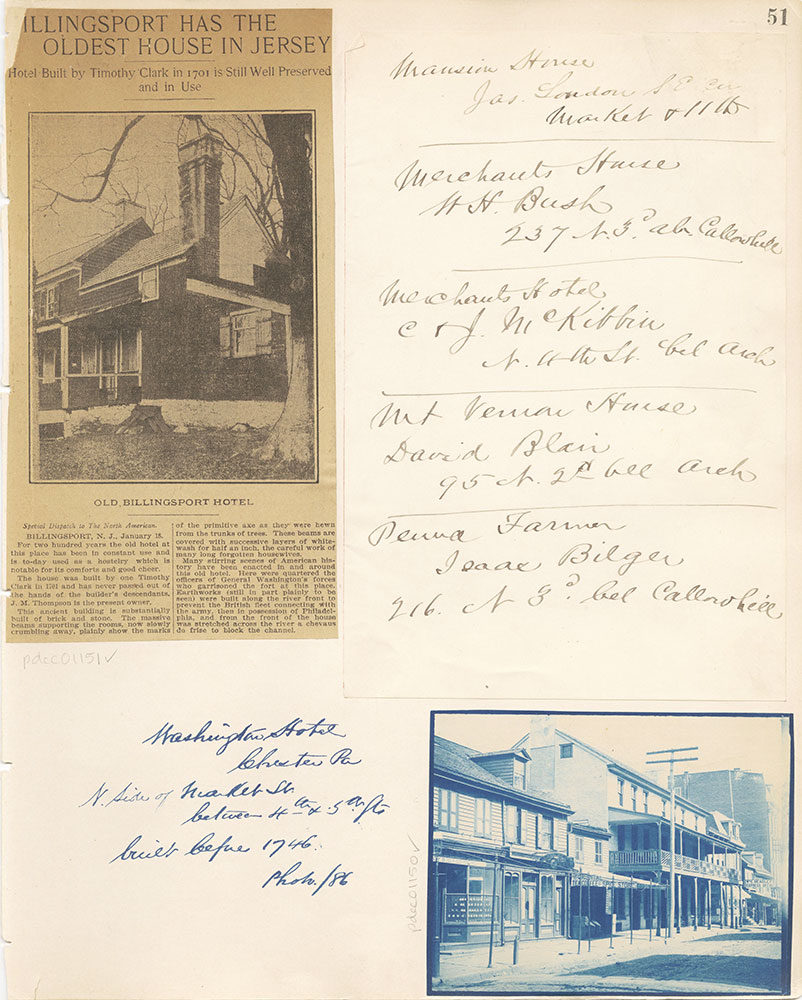 51
ILLINGSPORT HAS THE
OLDEST HOUSE IN JERSEY
Hotel Built by Timothy Clark in 1701 is Still Well Preserved
and in Use
OLD BILLINGSPORT HOTEL
Special Dispatch to The North American.
BILLINGSPORT, N. J., January 18.
For two hundred years the old hotel at
this place has been in constant use and
is to-day used as a hostelry which is
notable for its comforts and good cheer.
The house was built by one Timothy
Clark in 1701 and has never passed out of
the hands of the builder's descendants,
J. M. Thompson is the present owner.
This ancient building is substantially
built of brick and stone. The massive
beams supporting the rooms, now slowly
crumbling away, plainly show the marks
of the primitive axe as they were hewn
from the trunks of trees. These beams are
covered with successive layers of white-
wash for half an inch, the careful work of
many long forgotten housewives.
Many stirring scenes of American his-
tory have been enacted in and around
this old hotel. Here were quartered the
officers of General Washington's forces
who garrisoned the fort at this place.
Earthworks (still in part plainly to be
seen) were built along the river front to
prevent the British fleet connecting with
the army, then in possession of Philadel-
phia, and from the front of the house
was stretched across the river a chevaux
de frise to block the channel.
pdcc01151✓
Mansion House
Jas. London S E cor
Market & 11th
Merchants House
W H. Bush
237 N. 3d ab. Callowhill
Merchants Hotel
C & J. McKibbin
N. 4th St. bel Arch
Mt Vernon House
David Blair
95 N. 2d bel Arch
Penna Farmer
Isaac Bilger
216. N 3d bel Callowhill
Washington Hotel
Chester Pa
N. Side of Market St.
between 4th & 5th Sts
built before 1746.
Phot. /86
pdcc01150✓